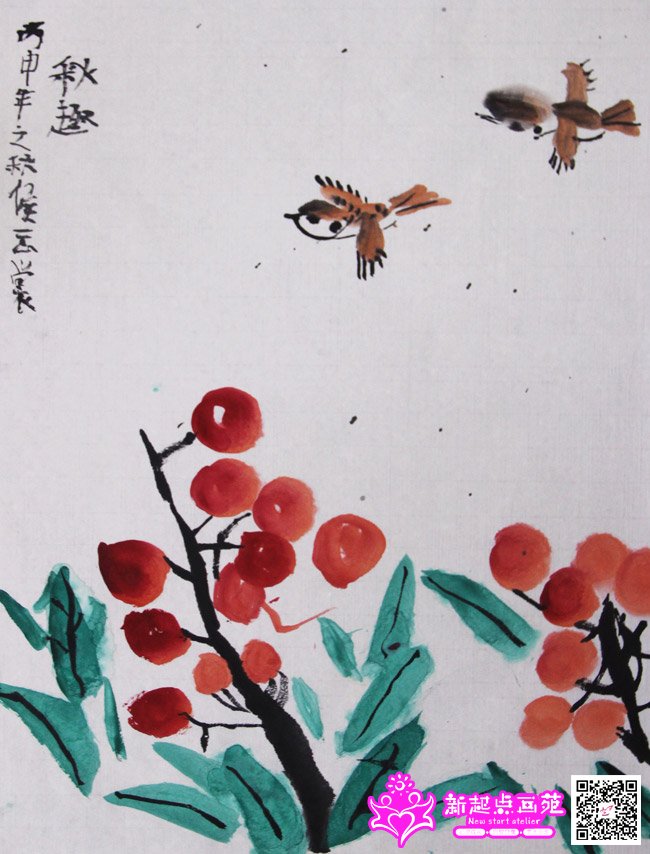 秋趣
丙申年之秋侯一畫
新起点画苑
New start atelier